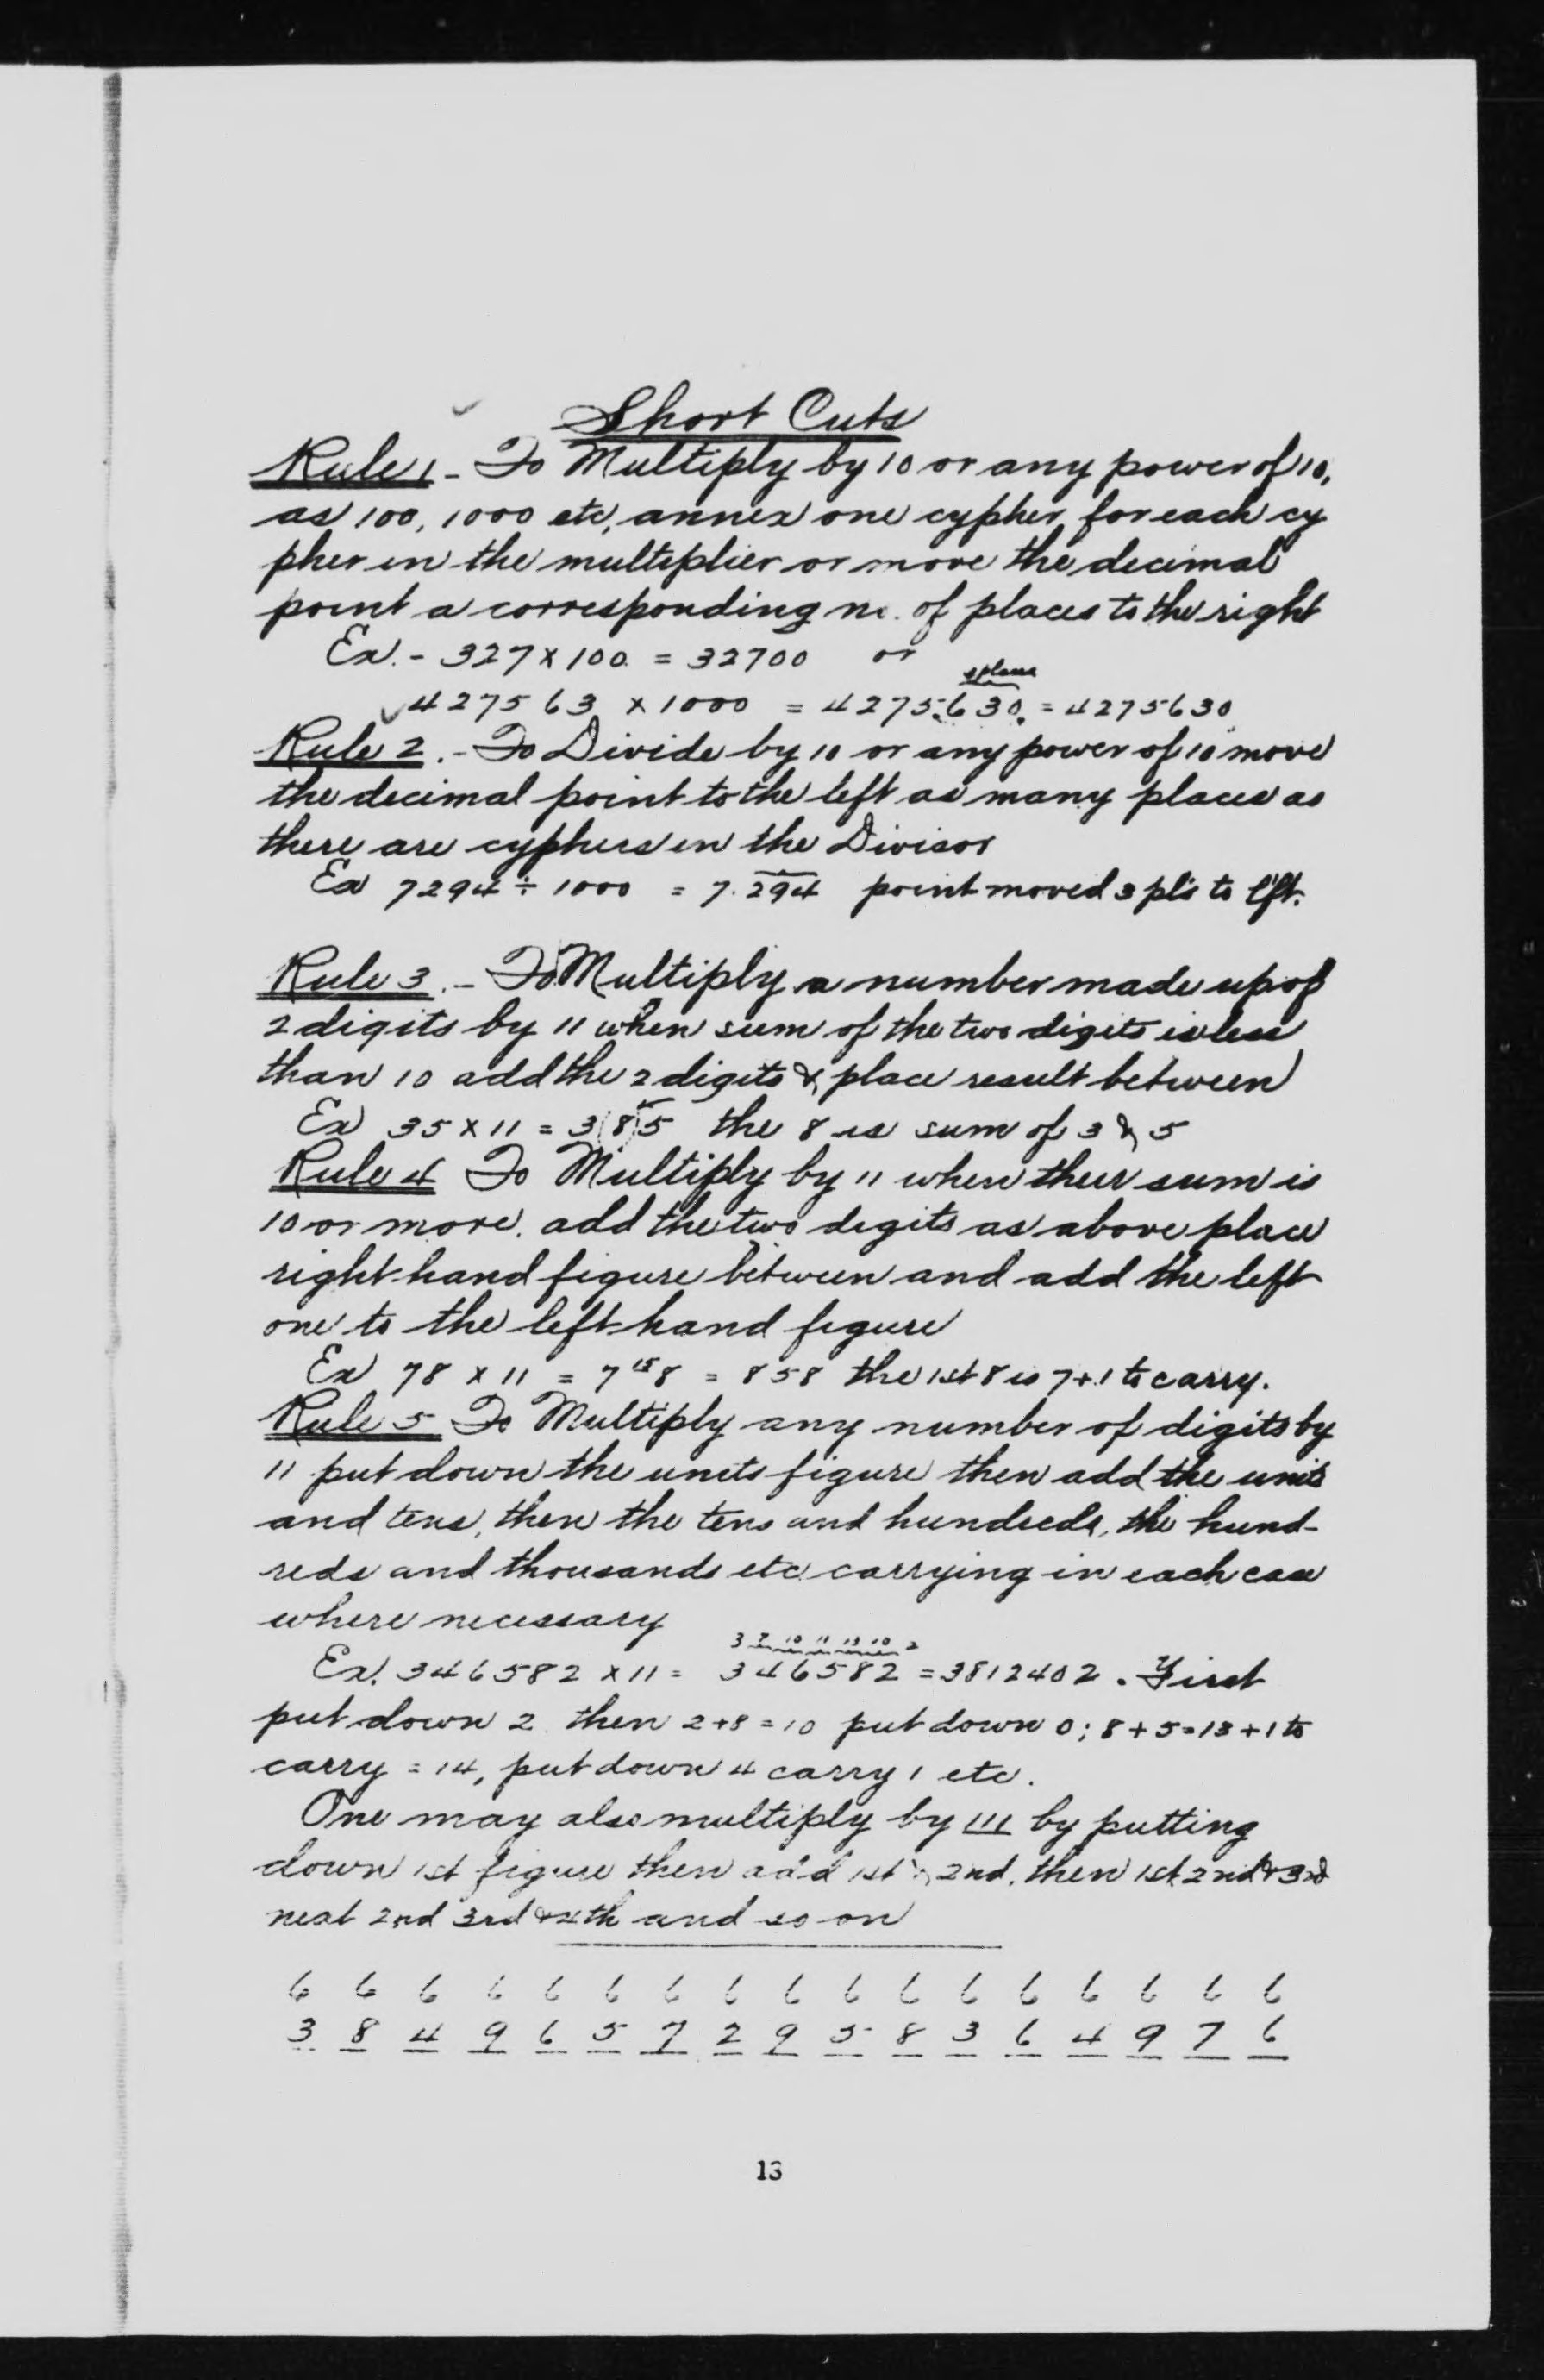 Short Cuts
Rule 1 - To Multiply by 10 or any power of 10,
as 100, 1000 etc, annex one cypher for each cy
pher in the multiplier or move the decimal
point a corresponding no. of places to the right
Ex. - 327 x 100 = 32700 or
3 places
427563 x 1000 = 4275.630. = 4275630
Rule 2. - To Divide by 10 or any power of 10 move
the decimal point to the left as many places as
there are cyphers in the Divisor
Ex 7294 ÷ 1000 = 7.294 point moved 3 pl's to l'ft.
Rule 3. - To Multiply a number made up of
2 digits by 11 when sum of the two digits is less
than 10 add the 2 digits & place result between
Ex 35 x 11 = 3(8)5 the 8 is sum of 3 & 5
Rule 4 To Multiply by 11 when their sum is
10 or more. add the two digits as above place
right hand figure between and add the left
one to the left hand figure
Ex 78 x 11 = 7 15 8 = 858 the 1st 8 is 7+1 to carry.
Rule 5 To Multiply any number of digits by
11 put down the units figure then add the units
and tens, then the tens and hundreds, the hund-
reds and thousands etc carrying in each case
where necessary
3 7 10 11 13 10 2
Ex. 346582 x 11 = 346582 = 3812402. First
put down 2 then 2+8=10 put down 0; 8+5=13+1 to
carry = 14, put down 4 carry 1 etc.
One may also multiply by 111 by putting
down 1st figure then add 1st & 2nd, then 1st 2nd & 3rd
next 2nd 3rd & 4th and so on
6 6 6 6 6 6 6 6 6 6 6 6 6 6 6 6 6
3 8 4 9 6 5 7 2 9 5 8 3 6 4 9 7 6
13